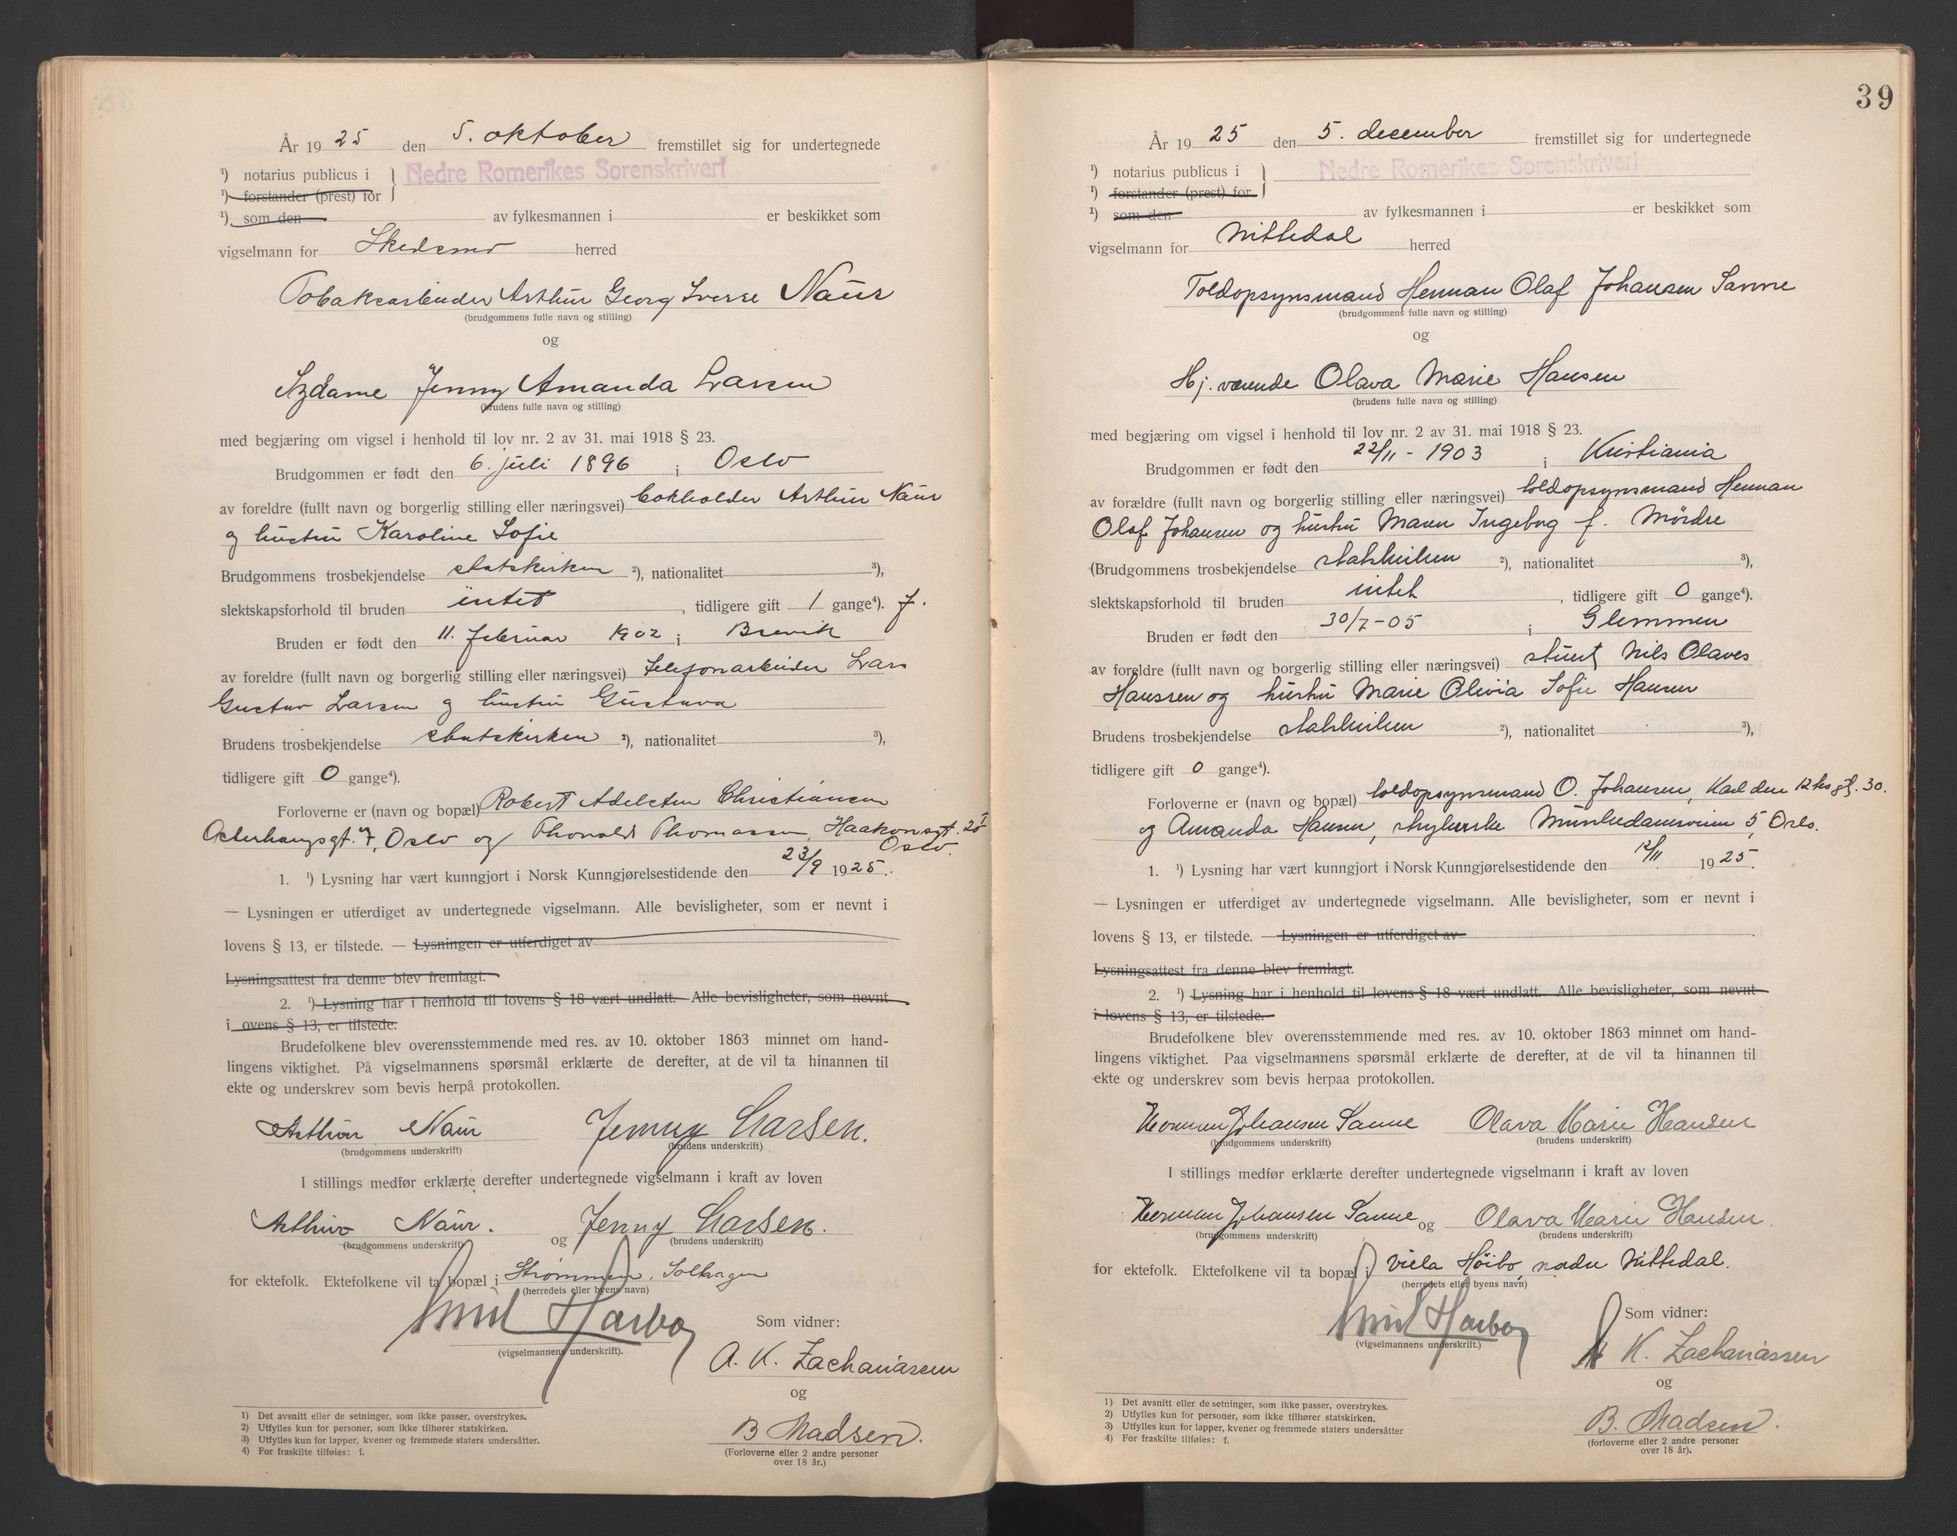 År 1925 den 5. oktober fremstillet sig for undertegnede
¹) notarius publicus i } Nedre Romerikes Sorenskriveri
¹) forstander (prest) for
¹) som den av fylkesmannen i er beskikket som
vigselmann for Skedsmo herred
Tobakksarbeider Arthur Georg Sverre Naur
(brudgommens fulle navn og stilling)
og
Sydame Jenny Amanda Larsen
(brudens fulle navn og stilling)
med begjæring om vigsel i henhold til lov nr. 2 av 31. mai 1918 § 23.
Brudgommen er født den 6. juli 1896 i Oslo
av foreldre (fullt navn og borgerlig stilling eller næringsvei) bokholder Arthur Naur
og hustru Karoline Sofie
Brudgommens trosbekjendelse statskirken ²), nationalitet ³),
slektskapsforhold til bruden intet, tidligere gift 1 gange⁴). f.
Bruden er født den 11. februar 1902 i Brevik
av foreldre (fullt navn og borgerlig stilling eller næringsvei) telefonarbeider Lars
Gustav Larsen og hustru Gustava
Brudens trosbekjendelse statskirken ²), nationalitet ³),
tidligere gift 0 gange⁴).
Forloverne er (navn og bopæl) Robert Adelsten Christiansen
Osterhausgt. 7, Oslo og Thorvald Thomassen, Haakonsgt. 20 I
Oslo.
1. ¹) Lysning har vært kunngjort i Norsk Kunngjørelsestidende den 23/9 1925.
— Lysningen er utferdiget av undertegnede vigselmann. Alle bevisligheter, som er nevnt i
lovens § 13, er tilstede. — Lysningen er utferdiget av
Lysningsattest fra denne blev fremlagt.
2. ¹) Lysning har i henhold til lovens § 18 vært undlatt. Alle bevisligheter, som nevnt
i ovens § 13, er tilstede.
Brudefolkene blev overensstemmende med res. av 10. oktober 1863 minnet om hand-
lingens viktighet. På vigselmannens spørsmål erklærte de derefter, at de vil ta hinannen til
ekte og underskrev som bevis herpå protokollen.
Arthur Naur Jenny Larsen.
(brudgommens underskrift) (brudens underskrift)
I stillings medfør erklærte derefter undertegnede vigselmann i kraft av loven
Arthur Naur. og Jenny Larsen.
(brudgommens underskrift) (brudens underskrift)
for ektefolk. Ektefolkene vil ta bopæl i Strømmen, Solhagen
(herredets eller byens navn)
Emil Harboy
(vigselmannens underskrift).
Som vidner:
A. K. Zachariassen
og
B Madsen.
(Forloverne eller 2 andre personer
over 18 år.)
1) Det avsnitt eller de setninger, som ikke passer, overstrykes.
2) Utfylles kun for personer, som ikke tilhører statskirken.
3) Utfylles kun for lapper, kvener og fremmede staters undersåtter.
4) For fraskilte tilføies: f.
39
År 1925 den 5. december fremstillet sig for undertegnede
¹) notarius publicus i } Nedre Romerikes Sorenskriveri
¹) forstander (prest) for
¹) som den av fylkesmannen i er beskikket som
vigselmann for Nittedal herred
Toldopsynsmand Herman Olaf Johansen Sanne
(brudgommens fulle navn og stilling)
og
Hj. værende Olava Marie Hansen
(brudens fulle navn og stilling)
med begjæring om vigsel i henhold til lov nr. 2 av 31. mai 1918 § 23.
Brudgommen er født den 22/11 - 1903 i Kristiania
av forældre (fullt navn og borgerlig stilling eller næringsvei) toldopsynsmand Herman
Olaf Johansen og hustru Maren Ingeborg f. Mördre
(Brudgommens trosbekjendelse statskirken ²), nationalitet ³),
slektskapsforhold til bruden intet, tidligere gift 0 gange⁴).
Bruden er født den 30/7 - 05 i Glemmen
av foreldre (fullt navn og borgerlig stilling eller næringsvei) stuert Nils Olaves
Hanssen og hustru Marie Olivia Sofie Hansen
Brudens trosbekjendelse statskirken ²), nationalitet ³),
tidligere gift 0 gange⁴).
Forloverne er (navn og bopæl) toldopsynsmand O. Johansen, Karl den 12tes gt. 30.
og Amanda Hansen, strykerske Munkedamsveien 5, Oslo.
1. ¹) Lysning har vært kunngjort i Norsk Kunngjørelsestidende den 12/11 1925.
— Lysningen er utferdiget av undertegnede vigselmann. Alle bevisligheter, som er nevnt i
lovens § 13, er tilstede. — Lysningen er utferdiget av
Lysningsattest fra denne blev fremlagt.
2. ¹) Lysning har i henhold til lovens § 18 vært undlatt. Alle bevisligheter, som nevnt
i lovens § 13, er tilstede.
Brudefolkene blev overensstemmende med res. av 10. oktober 1863 minnet om hand-
lingens viktighet. Paa vigselmannens spørsmål erklærte de derefter, at de vil ta hinannen til
ekte og underskrev som bevis herpaa protokollen.
Herman Johansen Sanne Olava Marie Hansen
(brudgommens underskrift) (brudens underskrift)
I stillings medfør erklærte derefter undertegnede vigselmann i kraft av loven
Herman Johansen Sanne og Olava Marie Hansen.
(brudgommens underskrift) (brudens underskrift)
for ektefolk. Ektefolkene vil ta bopæl i Villa Höibo, nedre Nittedal.
(herredets eller byens navn)
Emil Harboy
(vigselmannens underskrift.)
Som vidner:
A K. Zachariassen
og
B. Madsen.
(forloverne eller 2 andre personer
over 18 år).
1) Det avsnitt eller de setninger, som ikke passer, overstrykes.
2) Utfylles kun for personer, som ikke tilhører statskirken.
3) Utfylles kun for lapper, kvener og fremmede staters undersåtter
4) For fraskilte tilføies: f.